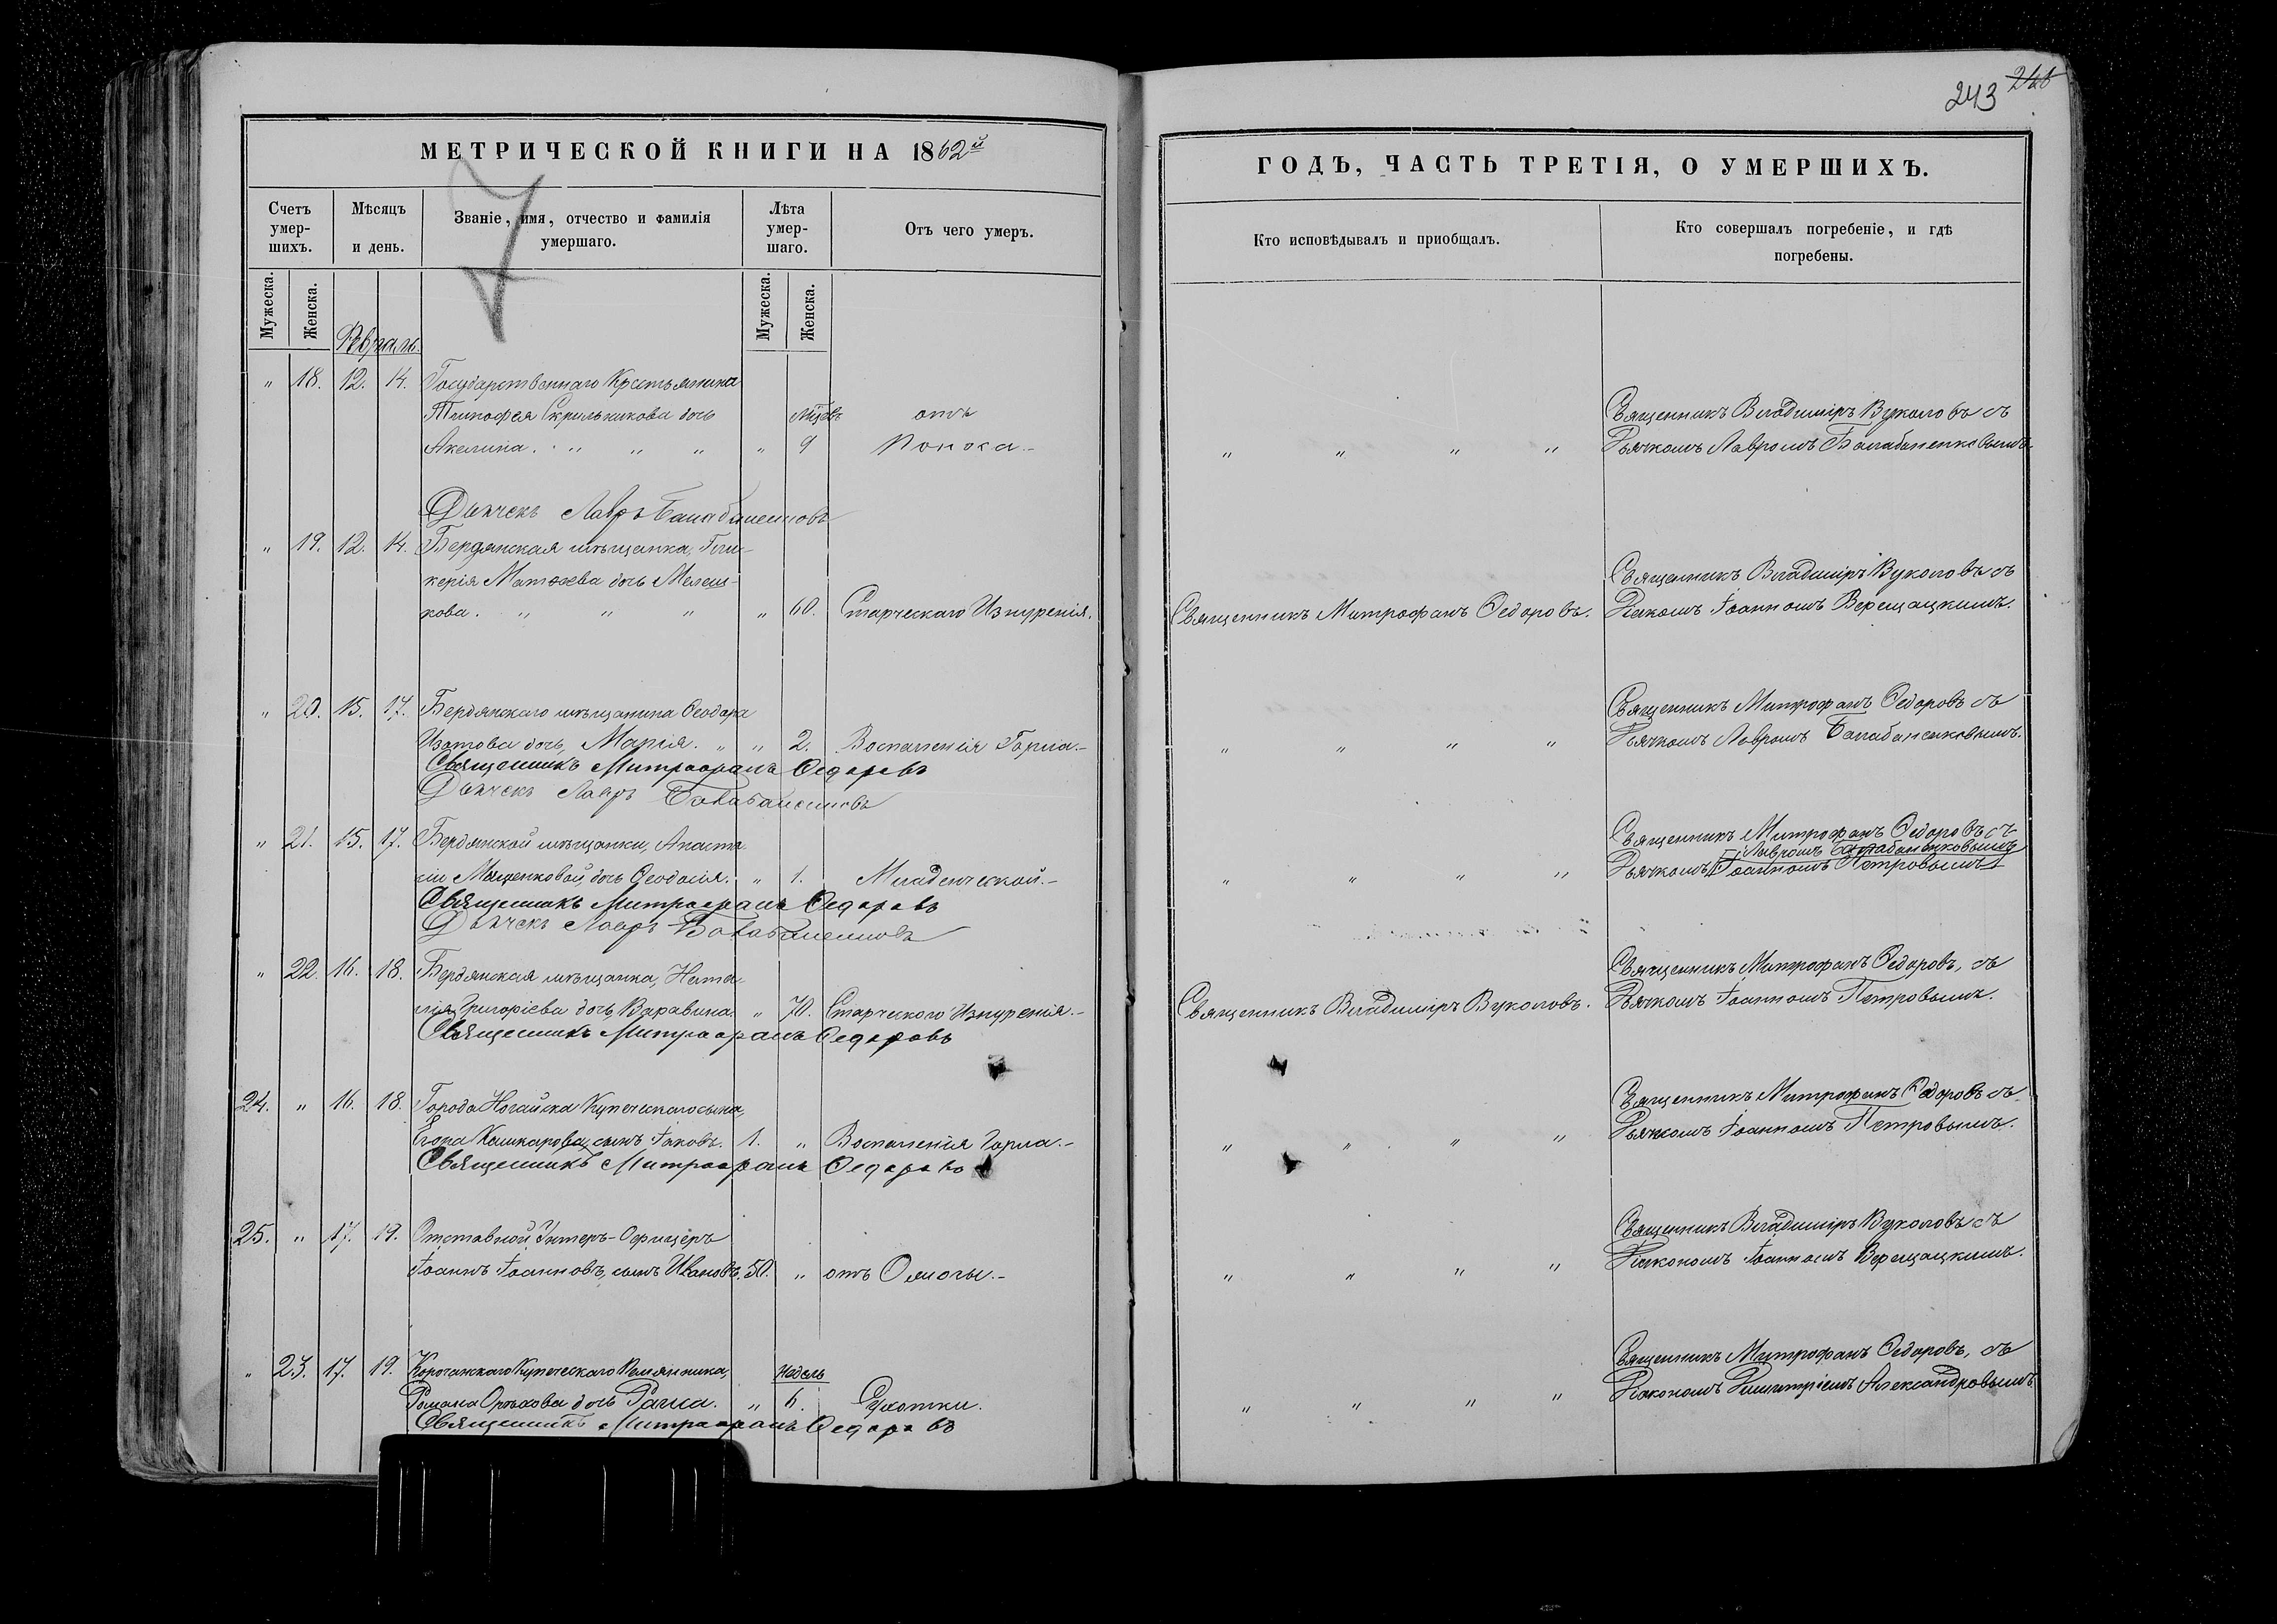 243 246
МЕТРИЧЕСКОЙ КНИГИ НА 1862й
ГОДЪ, ЧАСТЬ ТРЕТІЯ, О УМЕРШИХЪ.
Счетъ умер-шихъ.
Мѣсяцъ и день.
Званіе, имя, отчество и фамилія умершаго.
Лѣта умер-шаго.
Отъ чего умеръ.
Кто исповѣдывалъ и приобщалъ.
Кто совершалъ погребеніе, и гдѣ погребены.
Мужеска.
Женска.
Мужеска.
Женска.
Февраль.
" 18. 12. 14. Государственнаго Крестьянина
Тимофея Скрыльникова дочь отъ
Акелина. " " " " 9 Поноса.-
Священникъ Владиміръ Вуколовъ съ
Дьячкомъ Лавромъ Балабаненковымъ.
Дьячекъ Лавръ Балабаненковъ
" 19. 12. 14. Бердянская мѣщанка, Гли-
керія Матѳеева дочь Мелеш-
кова. " " " " 60. Старческаго Изнуренія.
Священникъ Митрофанъ Ѳедоровъ.
Священникъ Владиміръ Вуколовъ съ
Іоанномъ Верещацкимъ.
" 20. 15. 17. Бердянскаго мѣщанина Ѳеодора
Изотова дочь, Марія. " " 2. Воспаленія Горла.-
Священникъ Митрофанъ Ѳедоровъ
Дьячекъ Лавръ Балабаненковъ
Священникъ Митрофанъ Ѳедоровъ съ
Дьячкомъ Лавромъ Балабаненковымъ.
" 21. 15. 17. Бердянской мѣщанки, Анаста-
сіи Мащенковой, дочь Ѳеодосія. " 1. Младенческой.-
Священникъ Митрофанъ Ѳедоровъ
Дьячекъ Лавръ Балабаненковъ
Священникъ Митрофанъ Ѳедоровъ съ
Лавромъ Балабаненковымъ
Дьячкомъ Іоанномъ Петровымъ
" 22. 16. 18. Бердянская мѣщанка, Ната-
лія Григоріева дочь Варавина. " 70. Старческаго Изнуренія.-
Священникъ Митрофанъ Ѳедоровъ
Священникъ Владиміръ Вуколовъ.
Священникъ Митрофанъ Ѳедоровъ, съ
Дьячкомъ Іоанномъ Петровымъ.
24. " 16. 18. Города Ногайска Купеческаго сына,
Егора Кашкарова, сынъ Іаковъ. 1. " Воспаленія Горла.-
Священникъ Митрофанъ Ѳедоровъ
Священникъ Митрофанъ Ѳедоровъ съ
Дьячкомъ Іоанномъ Петровымъ.
25. " 17. 19. Отставной Унтеръ-Офицеръ
Іоаннъ Іоанновъ, сынъ Ивановъ. 50. "
Священникъ Владиміръ Вуколовъ съ
Діакономъ Іоанномъ Верещацкимъ.
" 23. 17. 19. Корочанскаго Купеческаго Племянника,
недель
Романа Орѣхова дочь Раиса. " 6. Сухотки.
Священникъ Митрофанъ Ѳедоровъ
Священникъ Митрофанъ Ѳедоровъ, съ
Діакономъ Димитріемъ Александровымъ